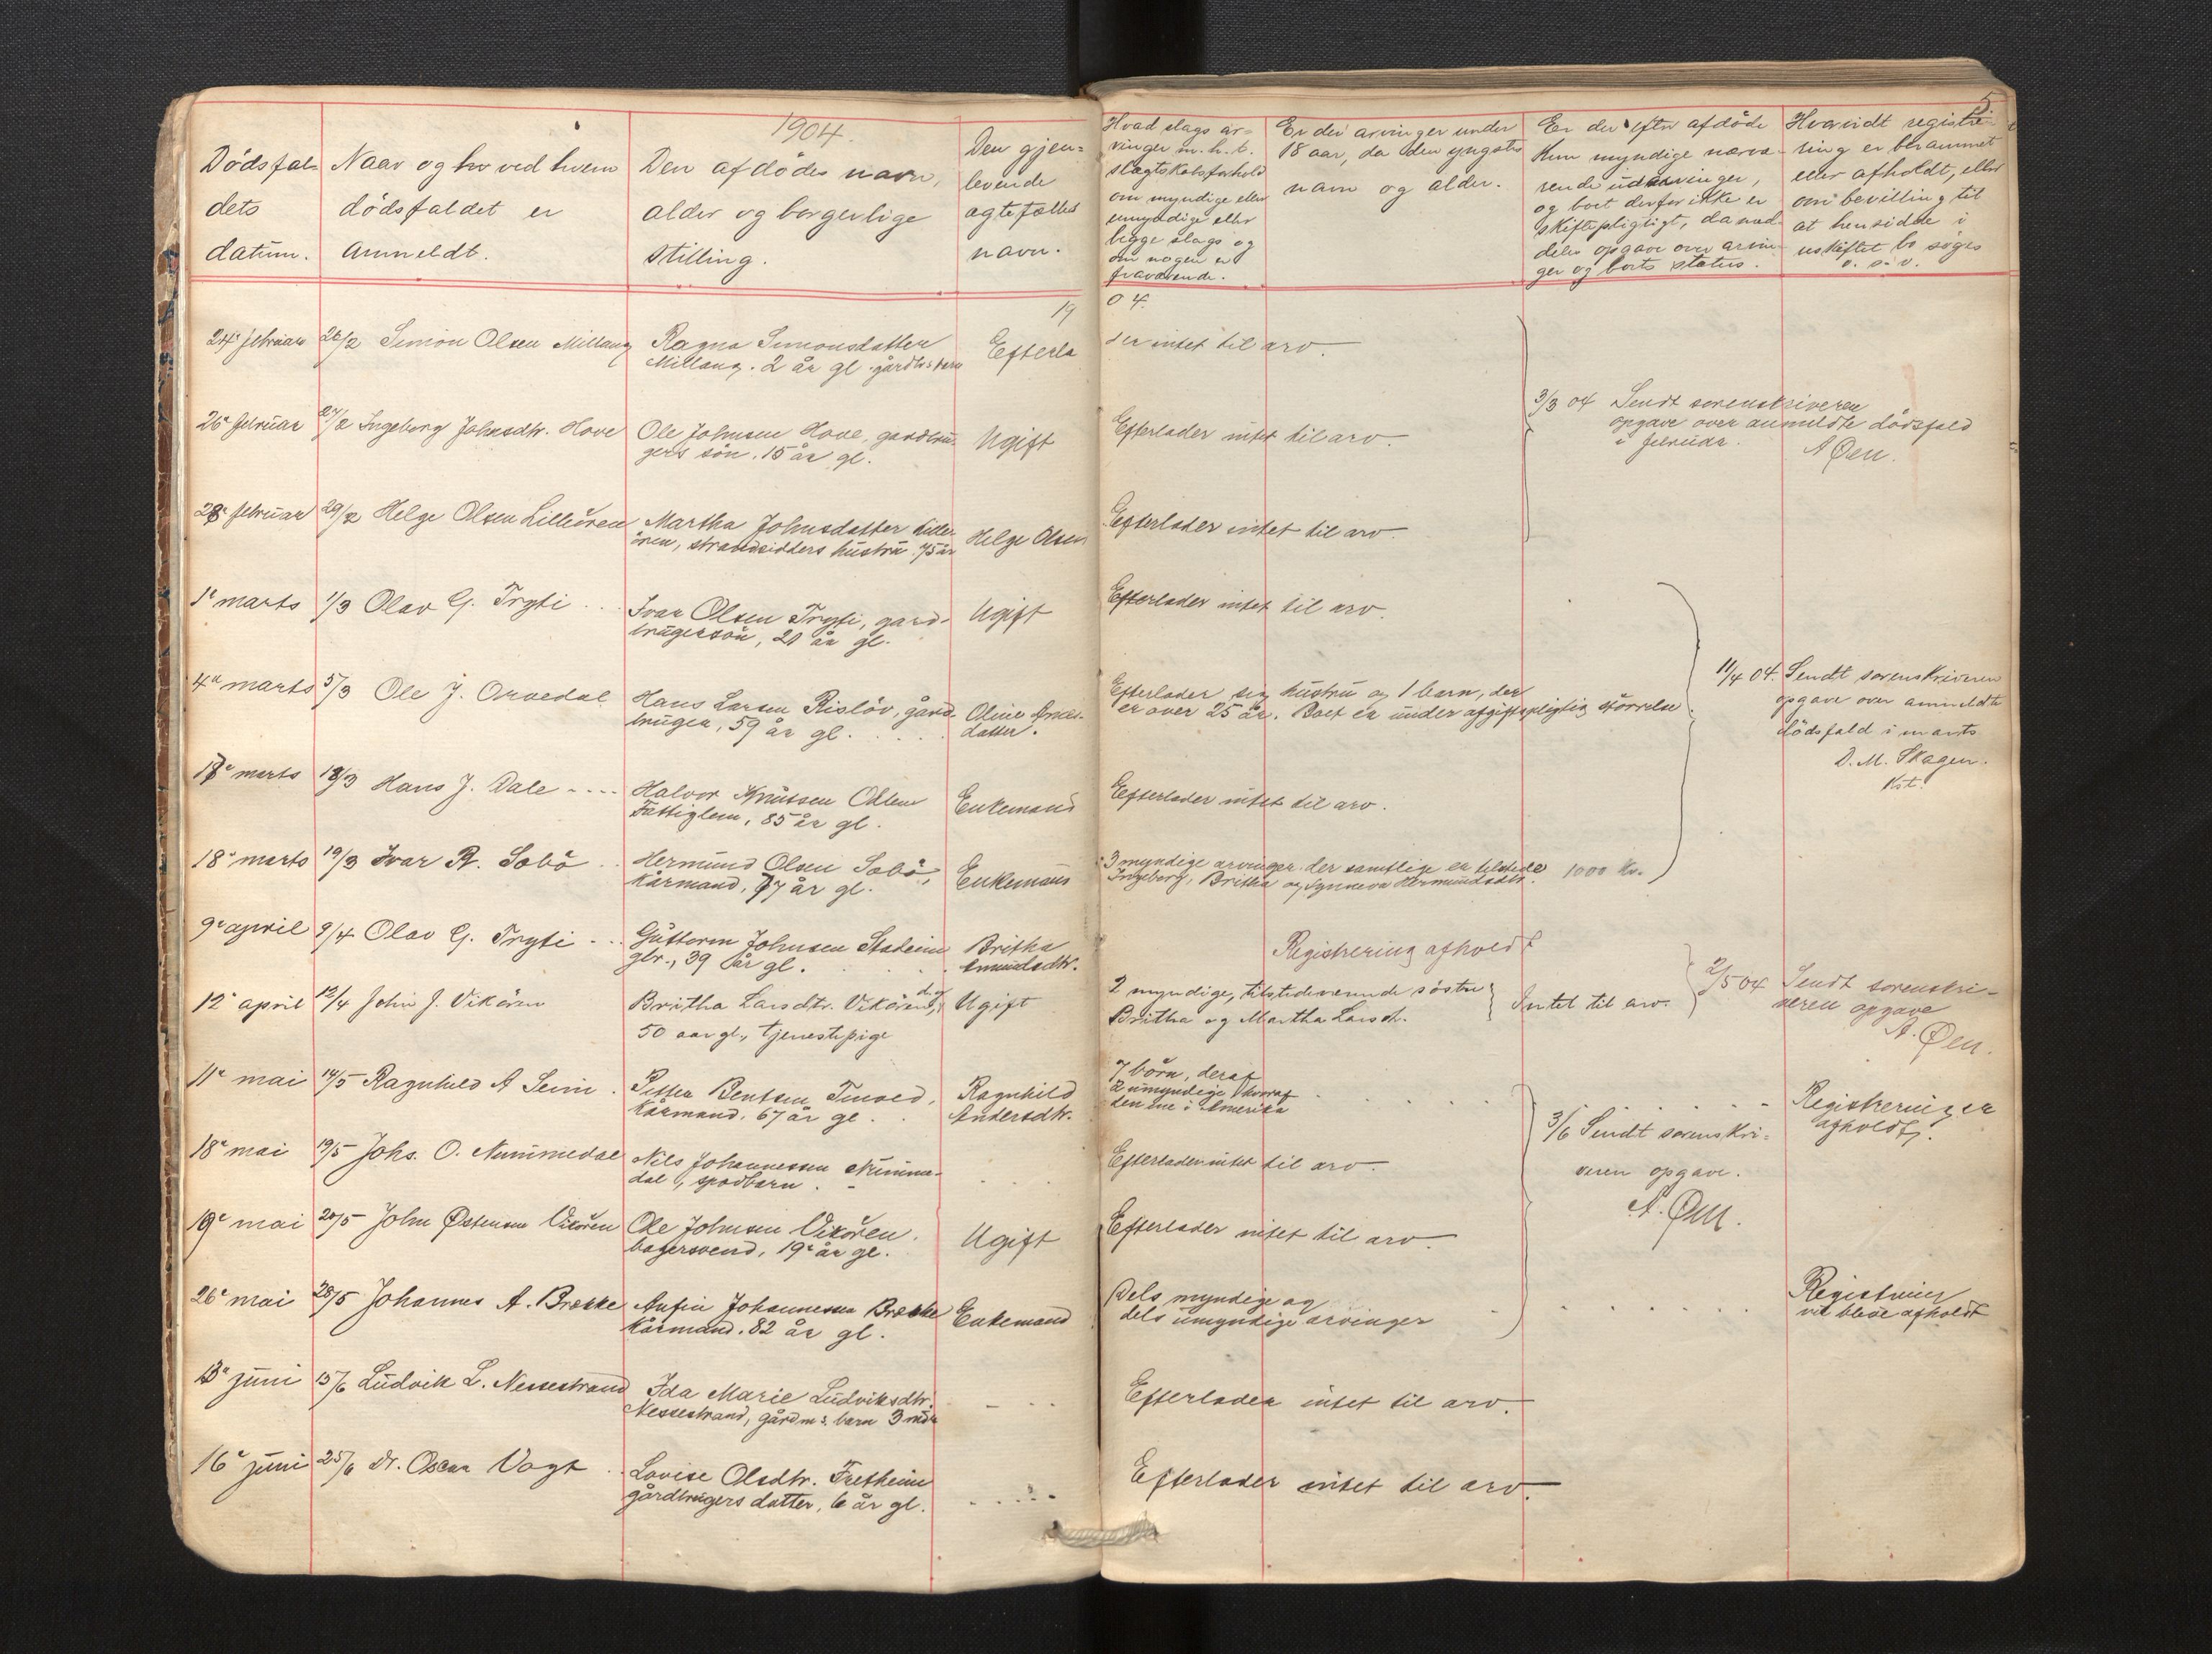 1904.
Dödsfal-
dets
datum.
Naar og hvved hvem
dödsfaldet er
anmeldt.
Den afdödes navn,
alder og borgerlige
stilling.
Den gjen-
levende
ægtefælles
navn.
5.
Hvad slags ar-
vinger m. h. t.
slægtskabsforhold
om myndige eller
umyndige eller
begge slags og
om nogen er
fraværende.
Er der arvinger under
18 aar, da den yngstes
navn og alder.
Er der efter afdöde
kun myndige nærvæ-
rende udarvinger,
og boet derfor ikke er
skiftepligtigt, da med-
deles opgave over arvin-
ger og boets status.
Hvorvidt registre-
ring er berammet
eller afholdt, eller
om bevilling til
at hensidde i
uskiftet bo söges
o. s. v.
19 04.
24de februar 26/2 Simon Olsen Millang Ragna Simonsdatter Efterla der intet til arv.
Millang. 2 år gl. gårdbr: barn
26de februar 27/2 Ingeborg Johnsdtr. Hove Ole Johnsen Hove, gardbru- Ugift Efterlader intet til arv.
gers sön, 15 år gl.
3/3 04 Sendt sorenskriveren
opgave over anmeldte dödsfald
i februar.
A Øen.
28de februar 29/2 Helge Olsen Lilleören Martha Johnsdatter Lille- Helge Olsen Efterlader intet til arv.
ören, strandsidders hustru 75 år
1e marts 1/3 Olav G. Tryti Ivar Olsen Tryti, gard- Ugift Efterlader intet til arv.
brugersön, 21 år gl.
4de marts 5/3 Ole J. Orvedal Hans Larsen Rislöv, gård- Oline
bruger, 59 år gl. datter.
Efterlader sig hustru og 1 barn, der
er over 25 år. Boet er under afgiftspligtig störrelse
11/4 04. Sendt sorenskriveren
opgave over anmeldte
dödsfald i marts
D. M. Skagen.
Kst.
17de marts 18/3 Hans J. Dale Halvor Knutsen Enkemand Efterlader intet til arv.
Fattiglem, 85 år gl.
18de marts 19/3 Ivar R. Säbö Hermund Olsen Säbö, Enkemand
Kårmand, 77 år gl.
3 myndige arvinger der samtlige er tilstede
Ingeborg, Britha og Synneva Hermundsdtr. 1000 Kr.
9de april 9/4 Olav G. Tryti Guttorm Johnsen Stadeim Britha
gbr., 39 år gl. Amundsdtr.
Registrering afholdt
12te april 12/4 John J. Vikören Britha Larsdtr. Vikören, Ugift
50 aar gl., tjenestepige
2 myndige, tilstedeværende söstre
Britha og Martha Larsd. Intet til arv.
2/5 04 Sendt sorenskri-
veren opgave
A. Øen.
11te mai 14/5 Ragnhild A Seim Petter Bentsen Finved, Ragnhild
Kårmand, 67 år gl. Andersdtr.
7 börn, deraf
2 umyndige, hvoraf
den ene i Amerika
Registrering er
afholdt.
18de mai 19/5 Johs. O. Nummedal Nils Johannessen Numme-
dal, spædbarn.
Efterlader intet til arv.
3/6 Sendt sorenskri-
veren opgave.
A. Øen.
19de mai 20/5 John Østensen Vikören Ole Johnsen Vikören. Ugift Efterlader intet til arv.
bagersvend, 19 år gl.
26de mai 28/5 Johannes A. Brekke Anfin Johannessen Brekke Enkemand
Kårmand. 82 år gl.
Dels myndige og
dels umyndige arvinger
Registrering
vil blive afholdt
13de juni 15/6 Ludvik L. Nessestrand Ida Marie Ludviksdtr. Efterlader intet til arv.
Nessestrand, gårdm: barn 3 mdr
16de juni 25/6 dr. Oscar Vogt Lovise Olsdtr. Fretheim Efterlader intet til arv.
gårdbrugers datter, 6 år gl.